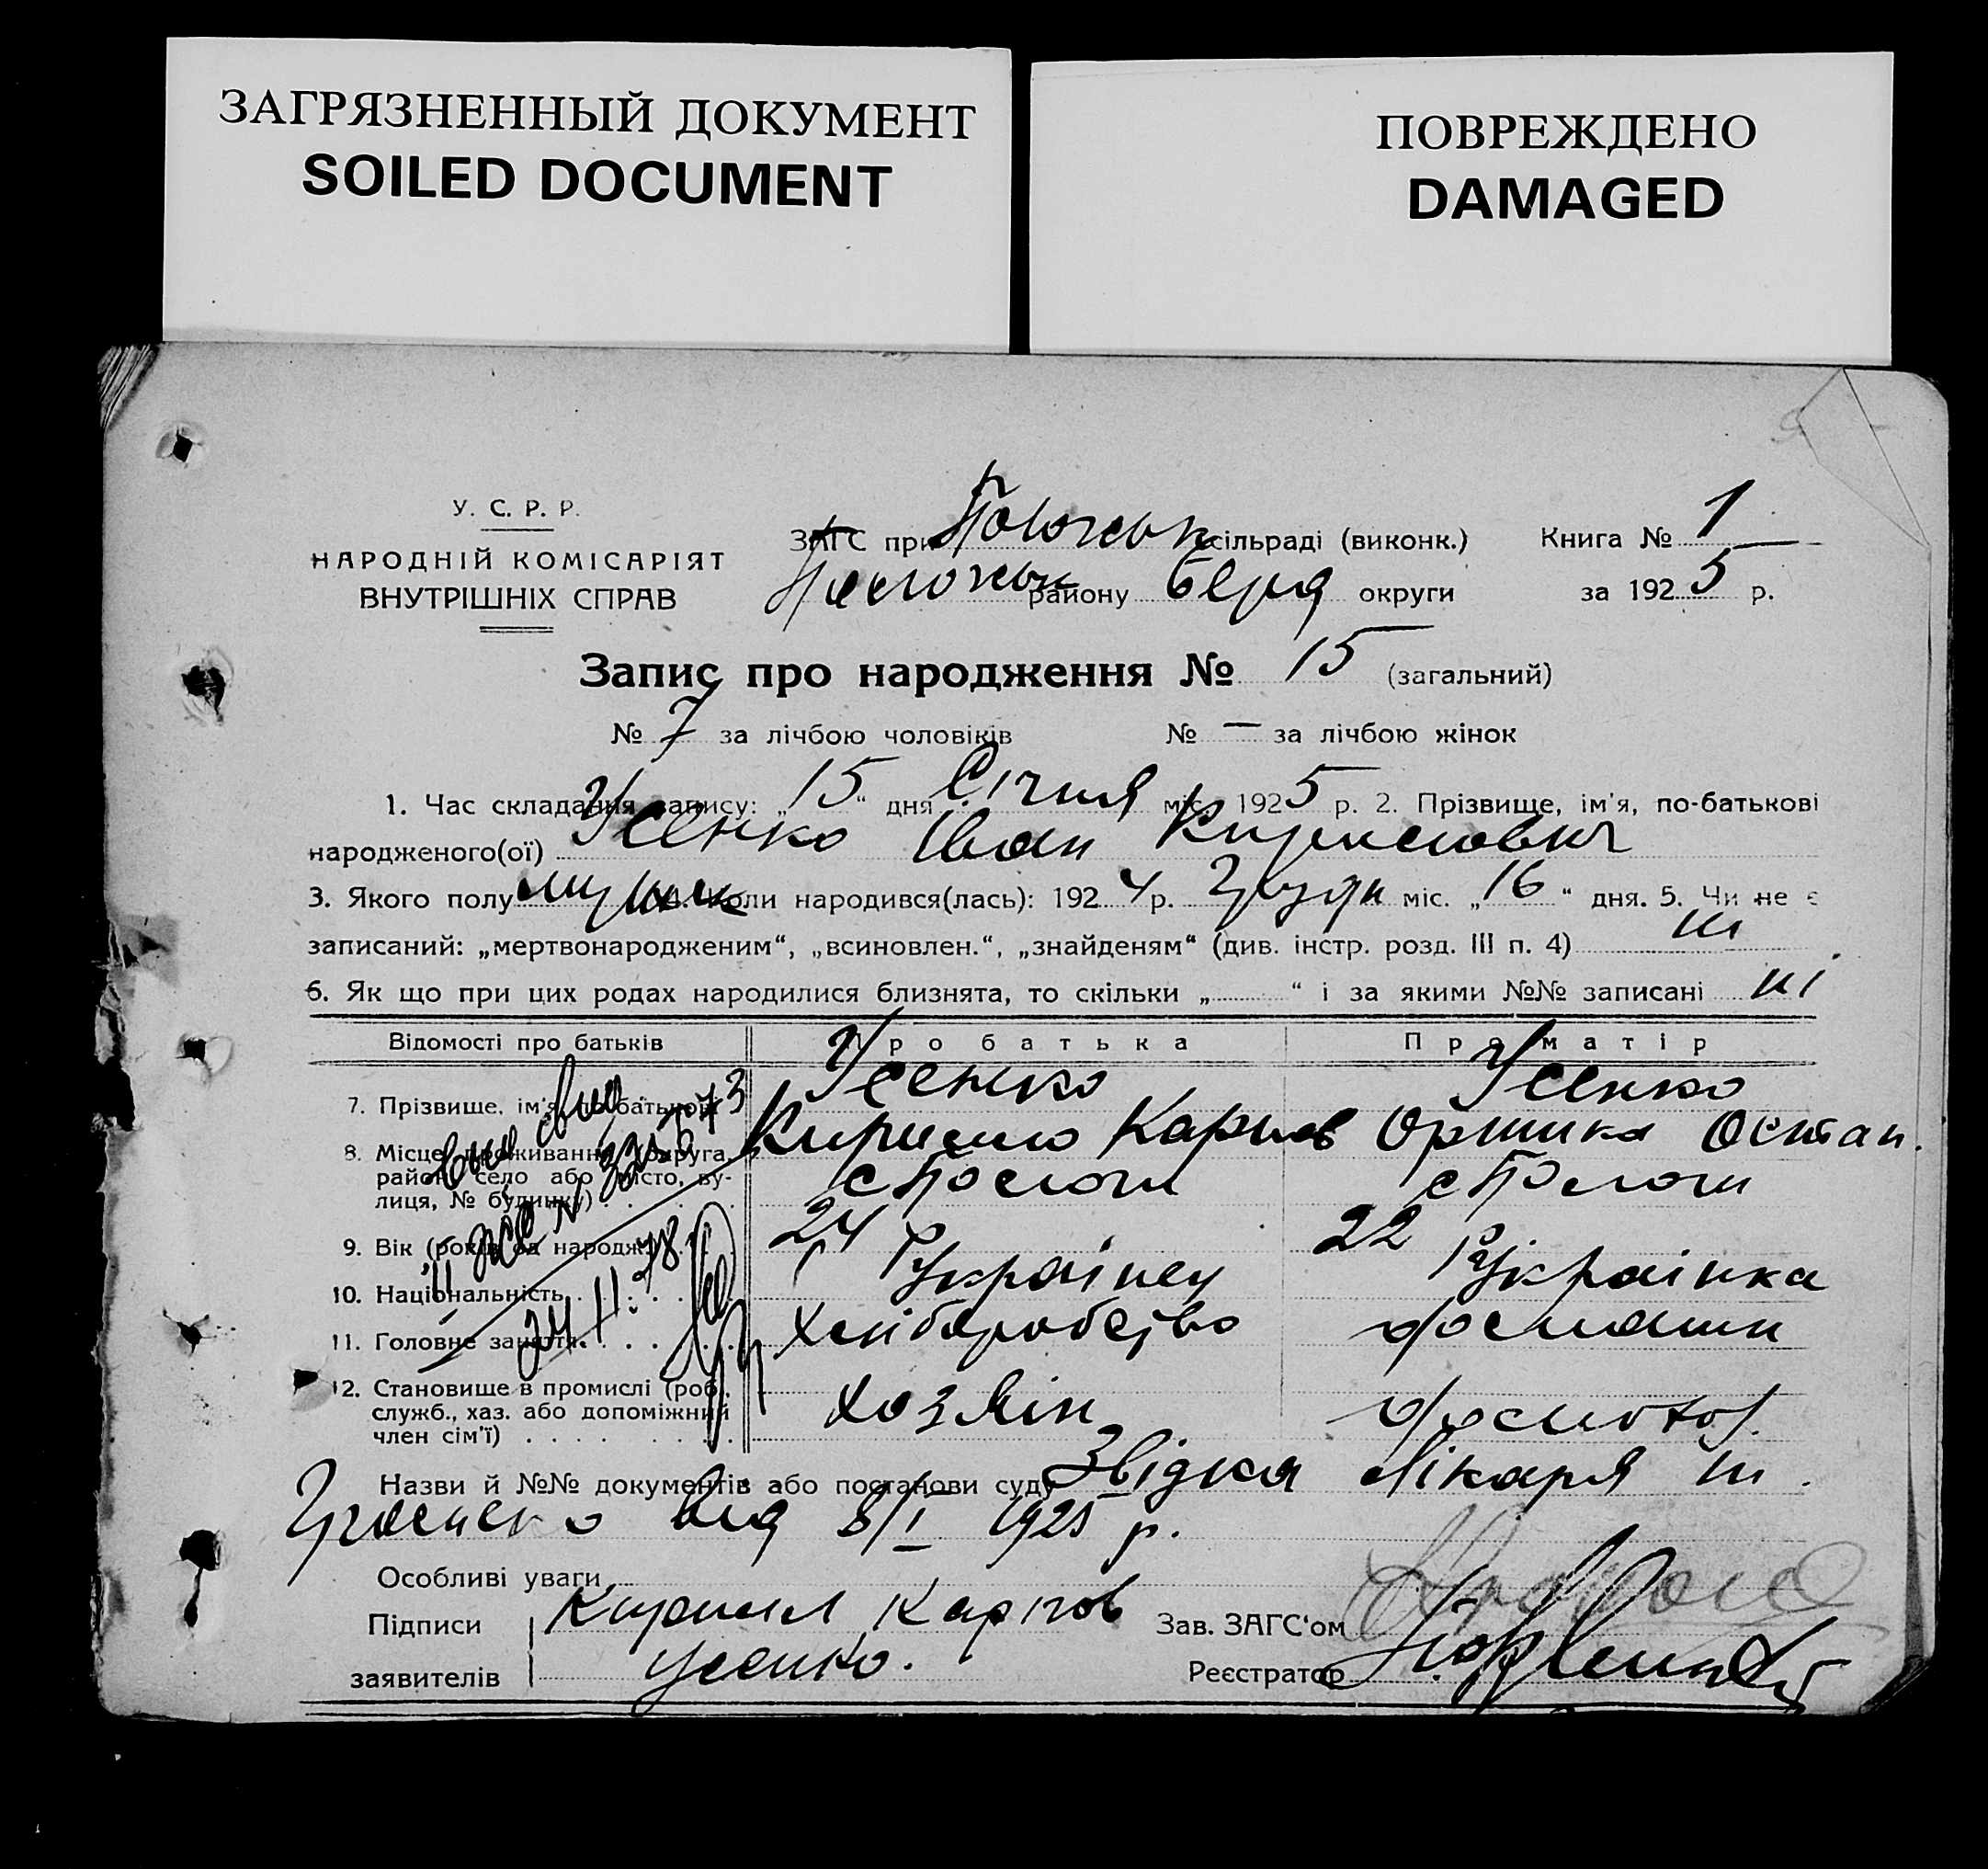 ЗАГРЯЗНЕННЫЙ ДОКУМЕНТ
SOILED DOCUMENT
ПОВРЕЖДЕНО
DAMAGED
У. С. Р. Р.
НАРОДНІЙ КОМІСАРІЯТ
ВНУТРІШНІХ СПРАВ
ЗАГС при сільраді (виконк.)
району Берд округи
Книга № 1
за 1925 р.
Запис про народження № 15 (загальний)
№ 7 за лічбою чоловіків № — за лічбою жінок
1. Час складання запису: „15“ дня Січня міс. 1925 р. 2. Прізвище, ім'я, по-батькові
народженого(ої) Усенко Іван Кирилович
3. Якого полу мужск 4. Коли народився(лась): 1924 р. Грудн міс. „16“ дня. 5. Чи не є
записаний: „мертвонародженим“, „всиновлен.“, „знайденям“ (див. інстр. розд. III п. 4) ні
6. Як що при цих родах народилися близнята, то скільки „ “ і за якими №№ записані ні
Відомості про батьків Про батька Про матір
7. Прізвище, ім'я, по-батькові Усенко Усенко
Кирило Карпов Оришка Остап.
8. Місце проживання (округа,
район, село або місто, ву-
лиця, № будинку) с Пологи с Пологи
9. Вік (років од народж.) 24 22
10. Національність Українец Українка
11. Головне заняття Хліборобство домашн
12. Становище в промислі (роб.,
служб., хаз. або допоміжний
член сім'ї) хозяін
24 II. 78
Назви й №№ документів або постанови суду Звідка лікаря
від 8/I 1925 р.
Особливі уваги
Підписи Кирилл Карпов
заявителів Усенко.
Зав. ЗАГС'ом
Реєстратор